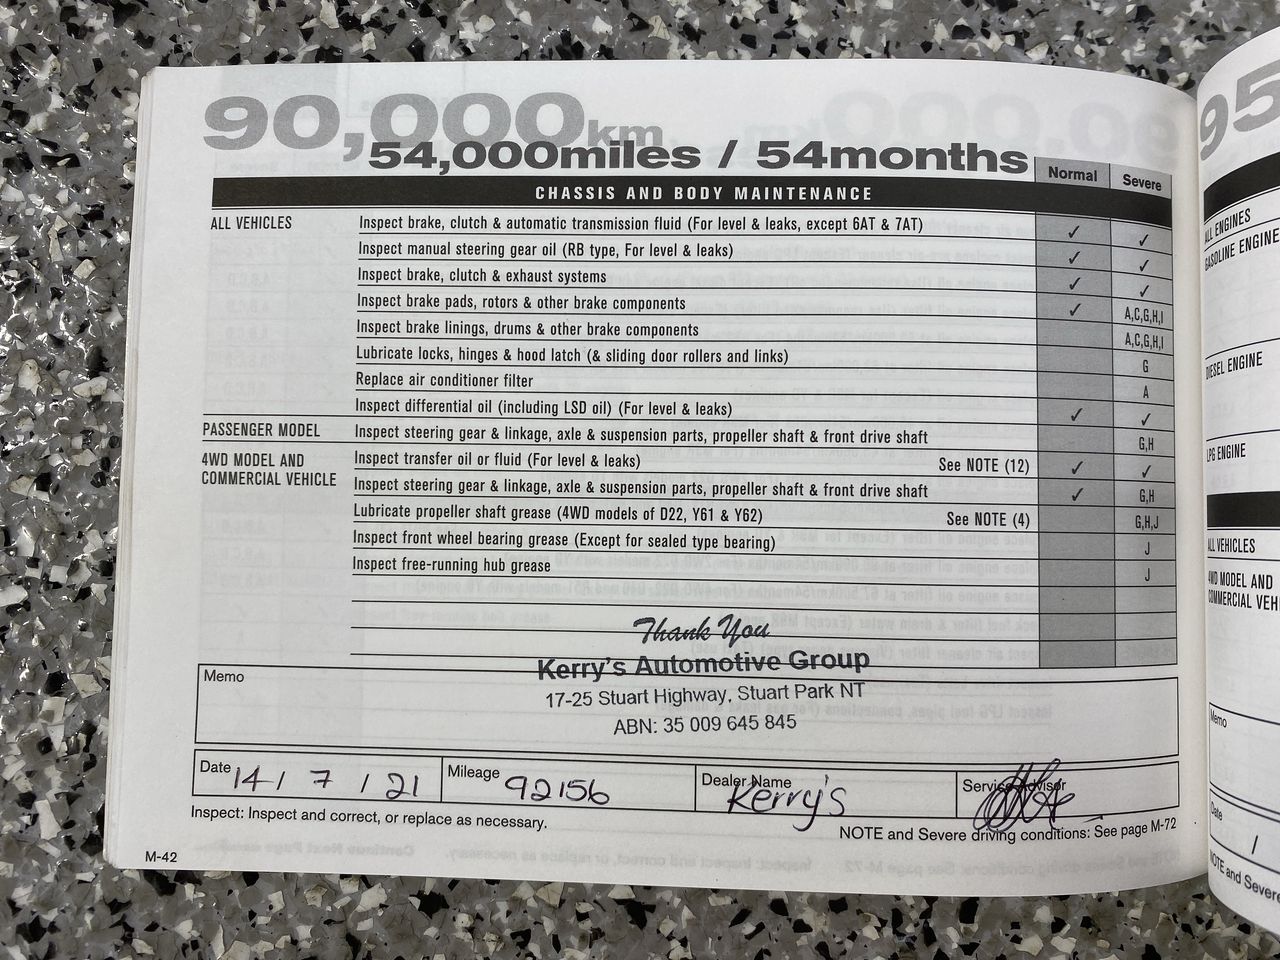 90,000km
54,000miles / 54months
Normal Severe
CHASSIS AND BODY MAINTENANCE
ALL VEHICLES Inspect brake, clutch & automatic transmission fluid (For level & leaks, except 6AT & 7AT) ✓ ✓
Inspect manual steering gear oil (RB type, For level & leaks) ✓ ✓
Inspect brake, clutch & exhaust systems ✓ ✓
Inspect brake pads, rotors & other brake components ✓ A,C,G,H,I
Inspect brake linings, drums & other brake components A,C,G,H,I
Lubricate locks, hinges & hood latch (& sliding door rollers and links) G
Replace air conditioner filter A
Inspect differential oil (including LSD oil) (For level & leaks) ✓ ✓
PASSENGER MODEL Inspect steering gear & linkage, axle & suspension parts, propeller shaft & front drive shaft G,H
4WD MODEL AND
COMMERCIAL VEHICLE
Inspect transfer oil or fluid (For level & leaks) See NOTE (12) ✓ ✓
Inspect steering gear & linkage, axle & suspension parts, propeller shaft & front drive shaft ✓ G,H
Lubricate propeller shaft grease (4WD models of D22, Y61 & Y62) See NOTE (4) G,H,J
Inspect front wheel bearing grease (Except for sealed type bearing) J
Inspect free-running hub grease J
Thank You
Kerry's Automotive Group
17-25 Stuart Highway, Stuart Park NT
ABN: 35 009 645 845
Memo
Date 14 / 7 / 21 Mileage 92156 Dealer Name Kerry's Service Advisor
Inspect: Inspect and correct, or replace as necessary.
NOTE and Severe driving conditions: See page M-72
M-42
95
ALL ENGINES
GASOLINE ENGINE
DIESEL ENGINE
LPG ENGINE
ALL VEHICLES
4WD MODEL AND
COMMERCIAL VEHI
Memo
Date /
NOTE and Severe